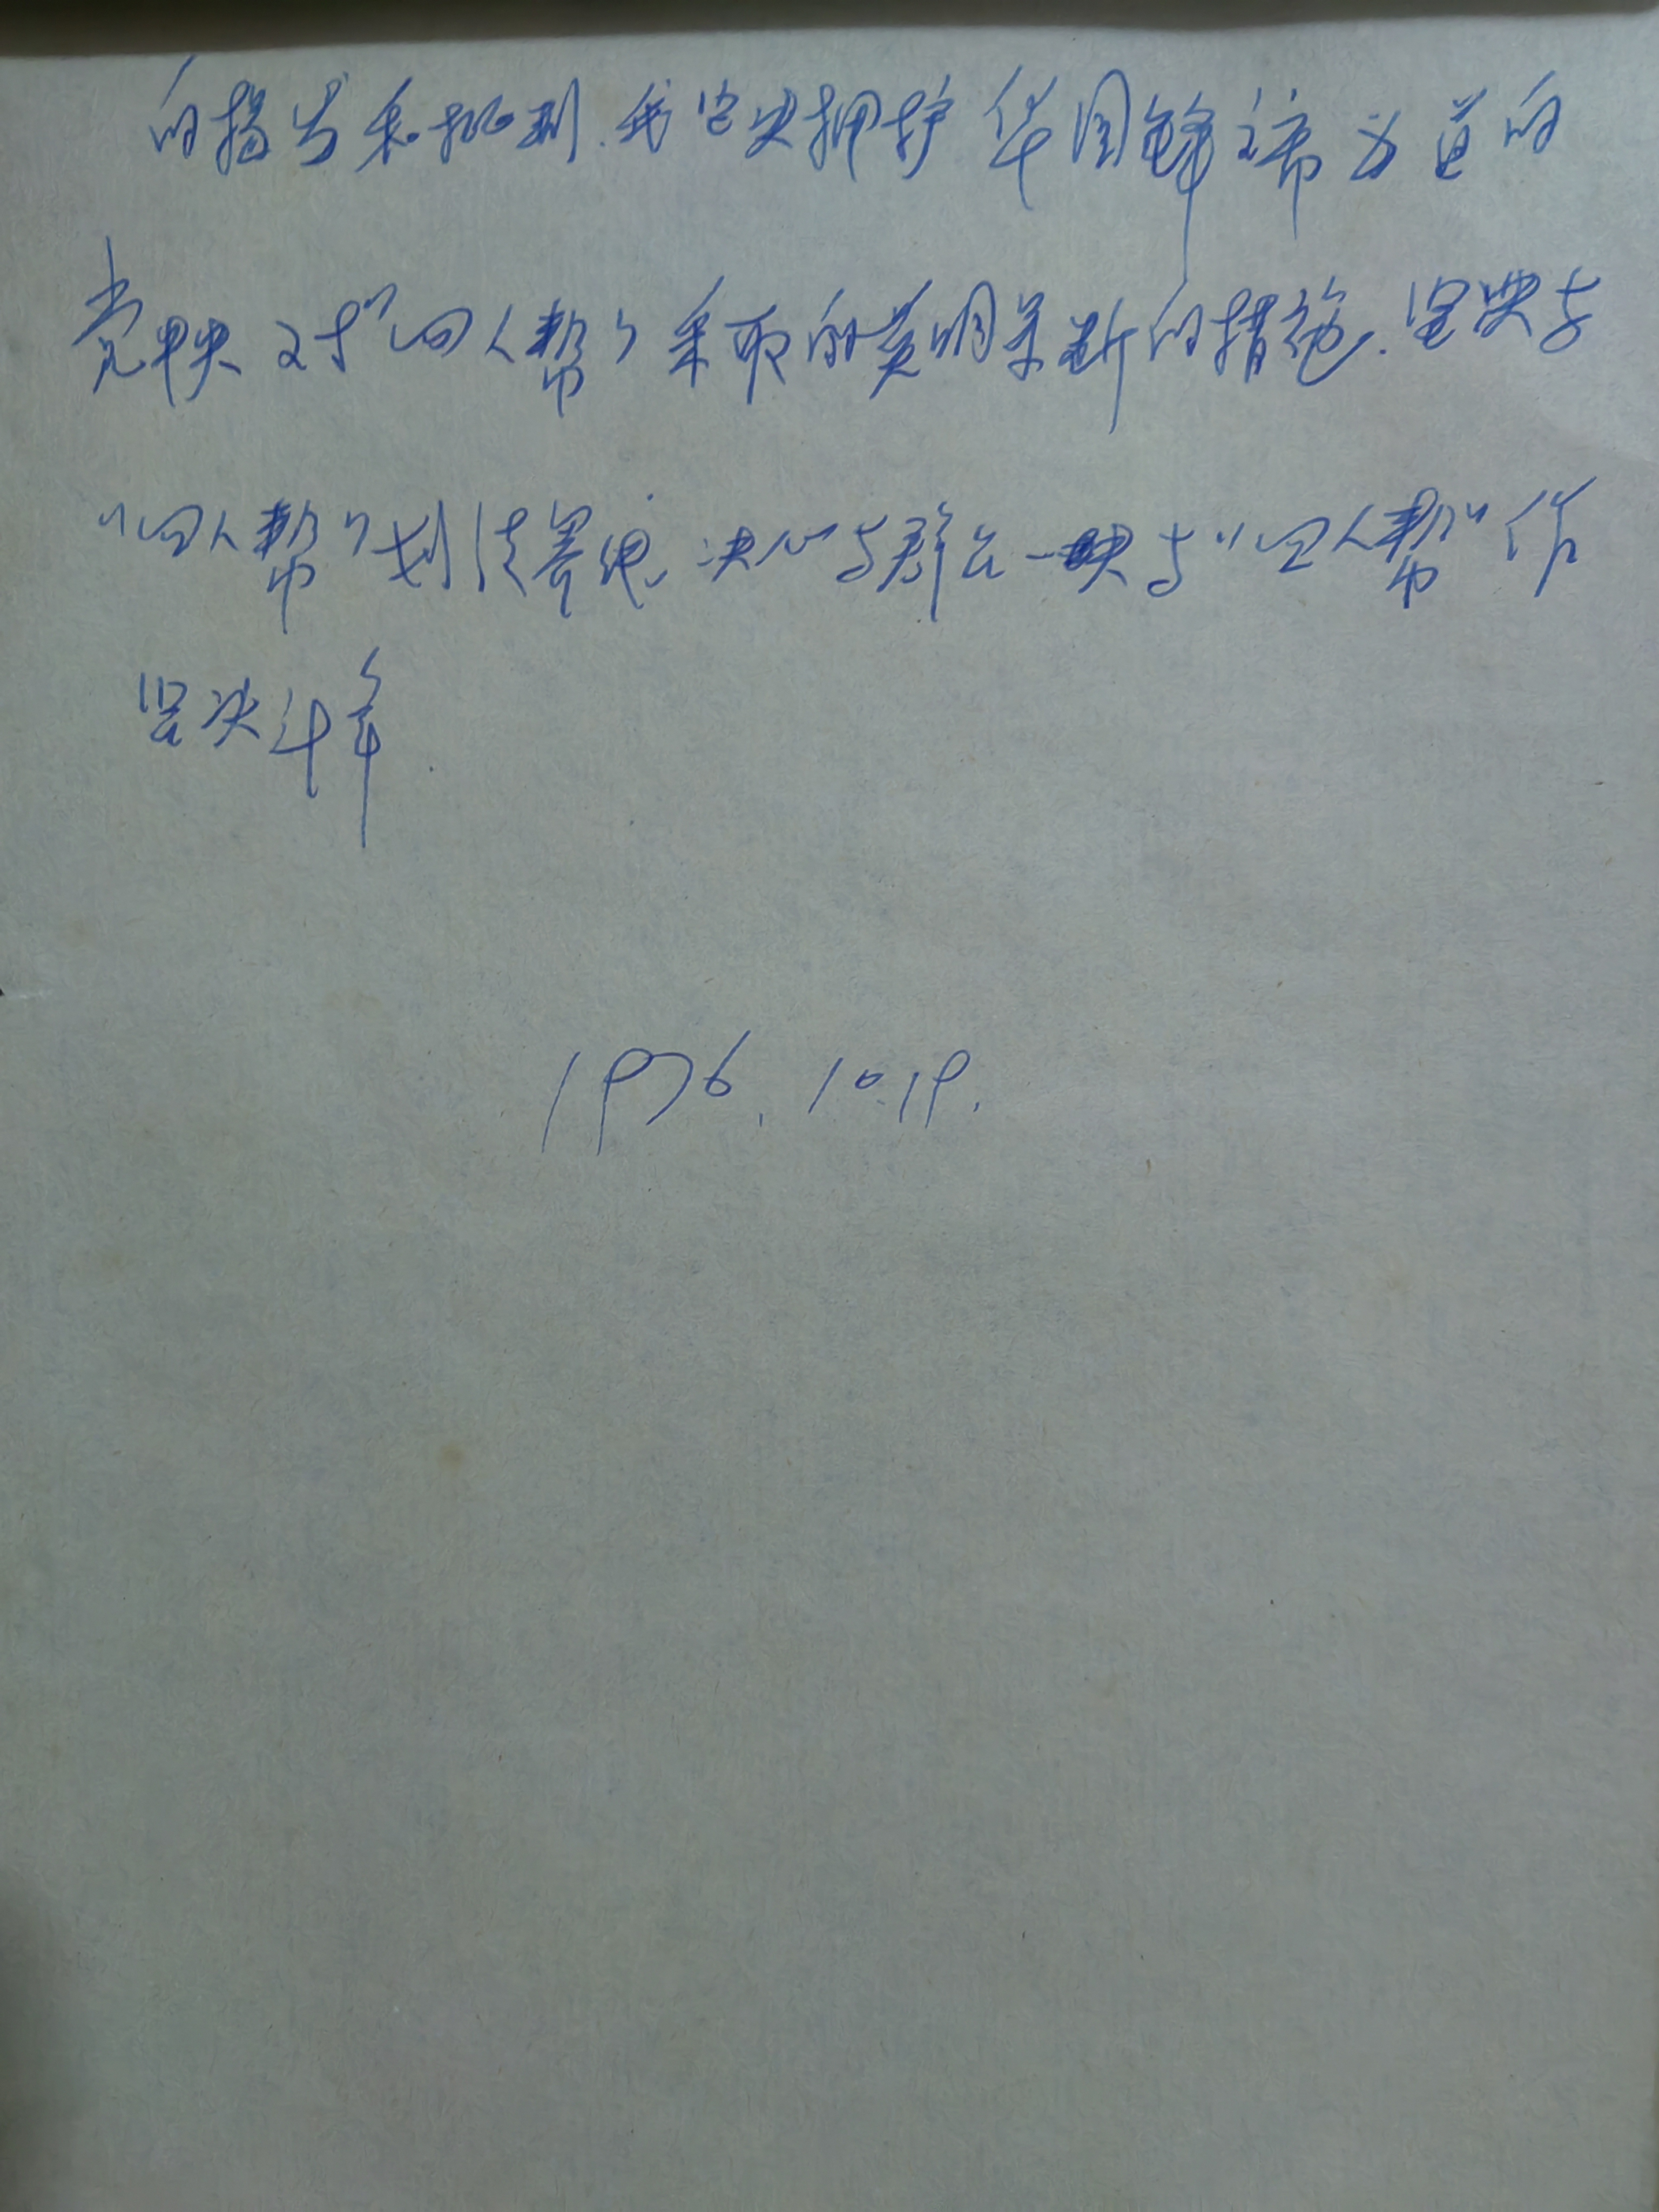 的揭发和批判.我坚决拥护华国锋主席为首的
党中央对"四人帮"采取的英明果断的措施.坚决与
"四人帮"划清界线.决心与群众一块与"四人帮"作
坚决斗争.
1976.10.19.